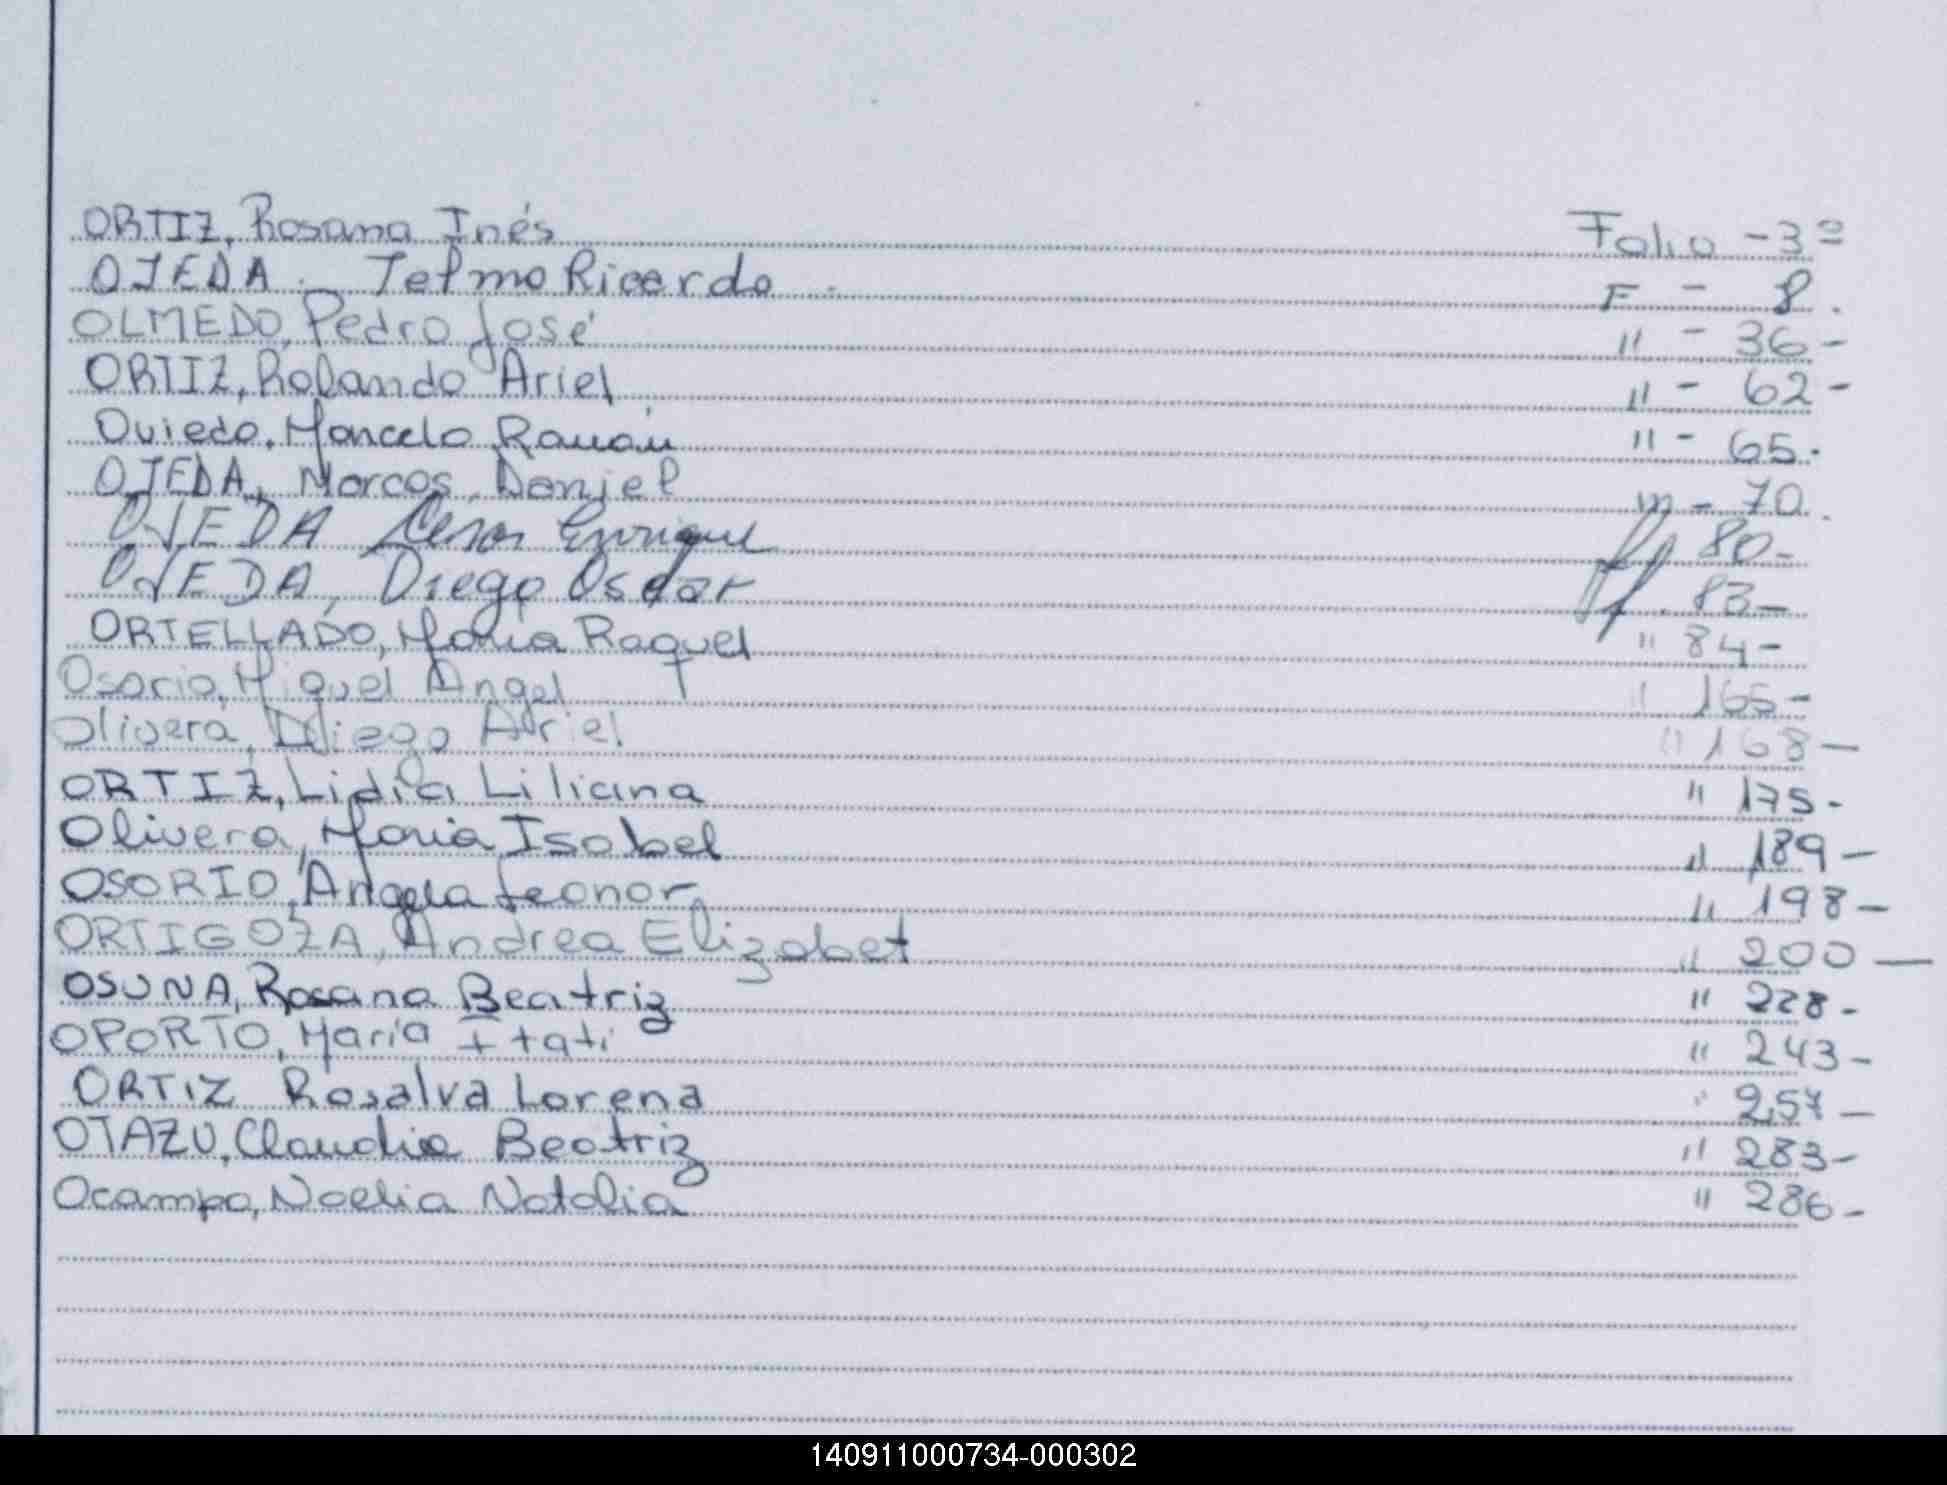 ORTIZ, Rosana Inés Folio - 3º
OJEDA. Telmo Ricardo. F - 8.
OLMEDO, Pedro José " - 36 -
ORTIZ, Rolando Ariel " - 62 -
Oviedo, Marcelo Ramón " - 65.
OJEDA, Marcos Daniel " - 70.
OJEDA Cesar Enrique 80 -
OJEDA, Diego Oscar 83 -
ORTELLADO, María Raquel " 84 -
Osorio, Miguel Angel " 165 -
Olivera, Diego Ariel " 168 -
ORTIZ, Lidia Liliana " 175 -
Olivera, Maria Isabel " 189 -
OSORIO, Angela Leonor " 198 -
ORTIGOZA, Andrea Elizabet " 200 -
OSUNA, Rosana Beatriz " 228 -
OPORTO, María Itatí " 243 -
ORTIZ Rosalva Lorena " 257 -
OTAZU, Claudia Beatriz " 283 -
Ocampo, Noelia Natalia " 286 -
140911000734-000302